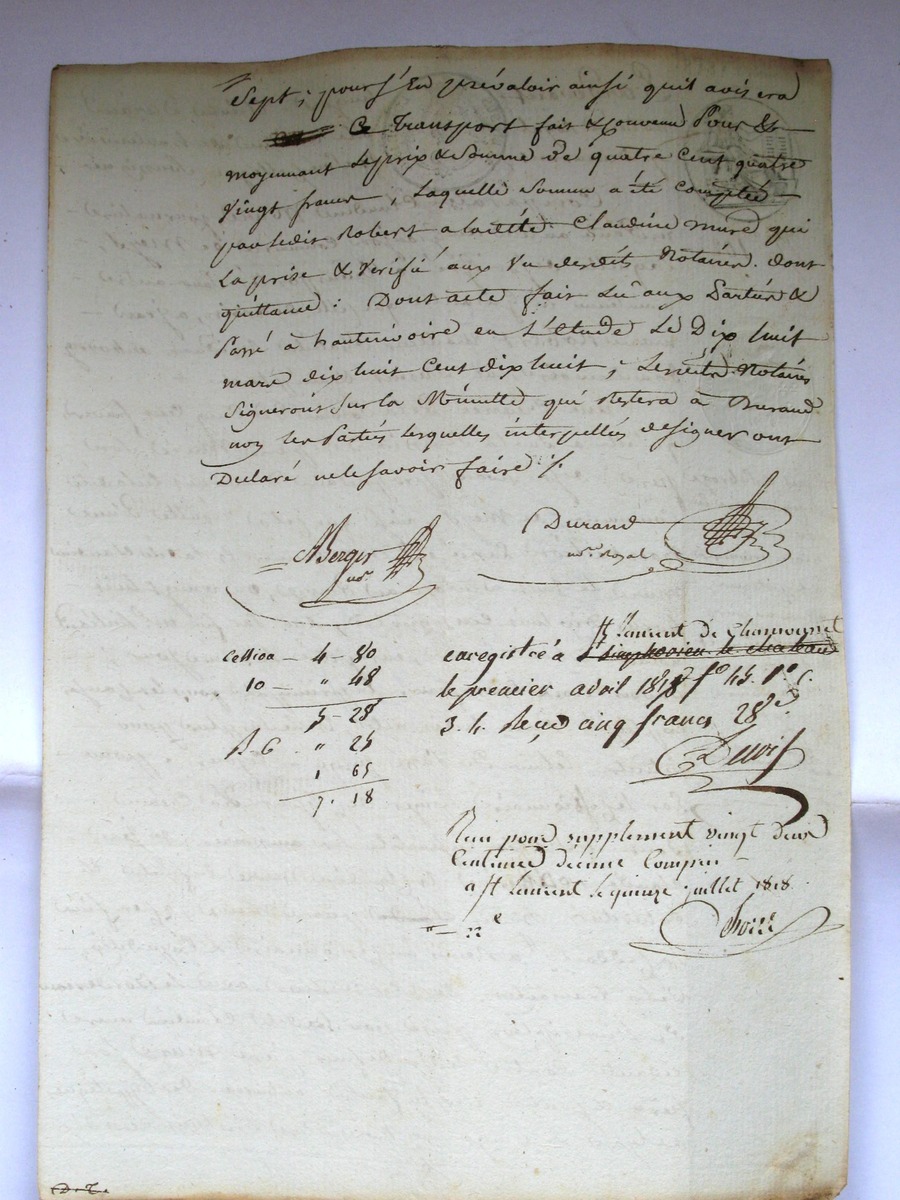 Sept; pour s'En prévaloir ainsi quil avisera
Ce Transport fait & Convenu Pour Et
moyennant Le prix & Somme De quatre Cent quatre
vingt francs, Laquelle Somme a été Comptée
par Ledit Robert a Ladite Claudine mure qui
La prise & Verifié aux Vu desdits Notaires dont
quittance: Dont acte fait Lu aux Parties &
Passé à hauterivoire en L'étude Le Dix huit
mars dix huit Cent dix huit; Lesdits Notaires
Signeront Sur La Minutte qui Restera à Durand
non les Parties Lesquelles interpellés de signer ont
Declaré ne le savoir faire ./.
Durand
ABerger
nre Royal
nre
St Laurent de Chamousset
Cession — 4 — 80
enregistré à St simphorien le chateau
10 — " 48
le premier avril 1818 fo 45. Ro C.
5 — 28
3. 4. Reçu cinq francs 28 c
R-G " 25
1 65
7. 18
Reçu pour supplement vingt deux
Centimes décime Compris
a St Laurent le quinze juillet 1818.
" — 22 c